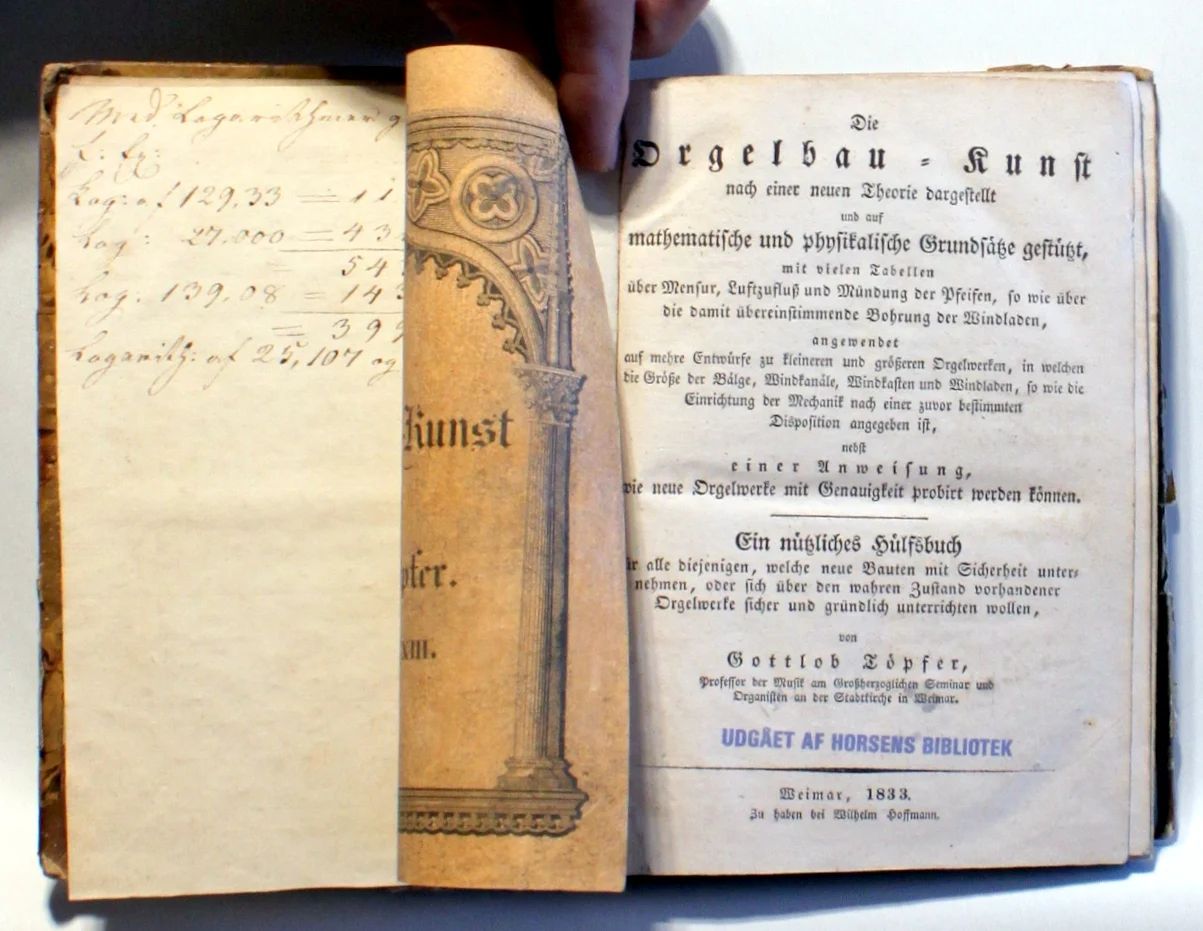 Med Logarithmer
f: Ex:
Log: af 129,33 = 11
Log: 27.000 = 43
54
Log. 139,08 = 143
= 399
Logarith: af 25,107 og
Kunst
pfer.
XIII.
Die
Orgelbau = Kunst
nach einer neuen Theorie dargestellt
und auf
mathematische und physikalische Grundsätze gestützt,
mit vielen Tabellen
über Mensur, Luftzufluß und Mündung der Pfeifen, so wie über
die damit übereinstimmende Bohrung der Windladen,
angewendet
auf mehre Entwürfe zu kleineren und größeren Orgelwerken, in welchen
die Größe der Bälge, Windkanäle, Windkasten und Windladen, so wie die
Einrichtung der Mechanik nach einer zuvor bestimmten
Disposition angegeben ist,
nebst
einer Anweisung,
wie neue Orgelwerke mit Genauigkeit probirt werden können.
Ein nützliches Hülfsbuch
ür alle diejenigen, welche neue Bauten mit Sicherheit unter=
nehmen, oder sich über den wahren Zustand vorhandener
Orgelwerke sicher und gründlich unterrichten wollen,
von
Gottlob Töpfer,
Professor der Musik am Großherzoglichen Seminar und
Organisten an der Stadtkirche in Weimar.
UDGÅET AF HORSENS BIBLIOTEK
Weimar, 1833.
Zu haben bei Wilhelm Hoffmann.